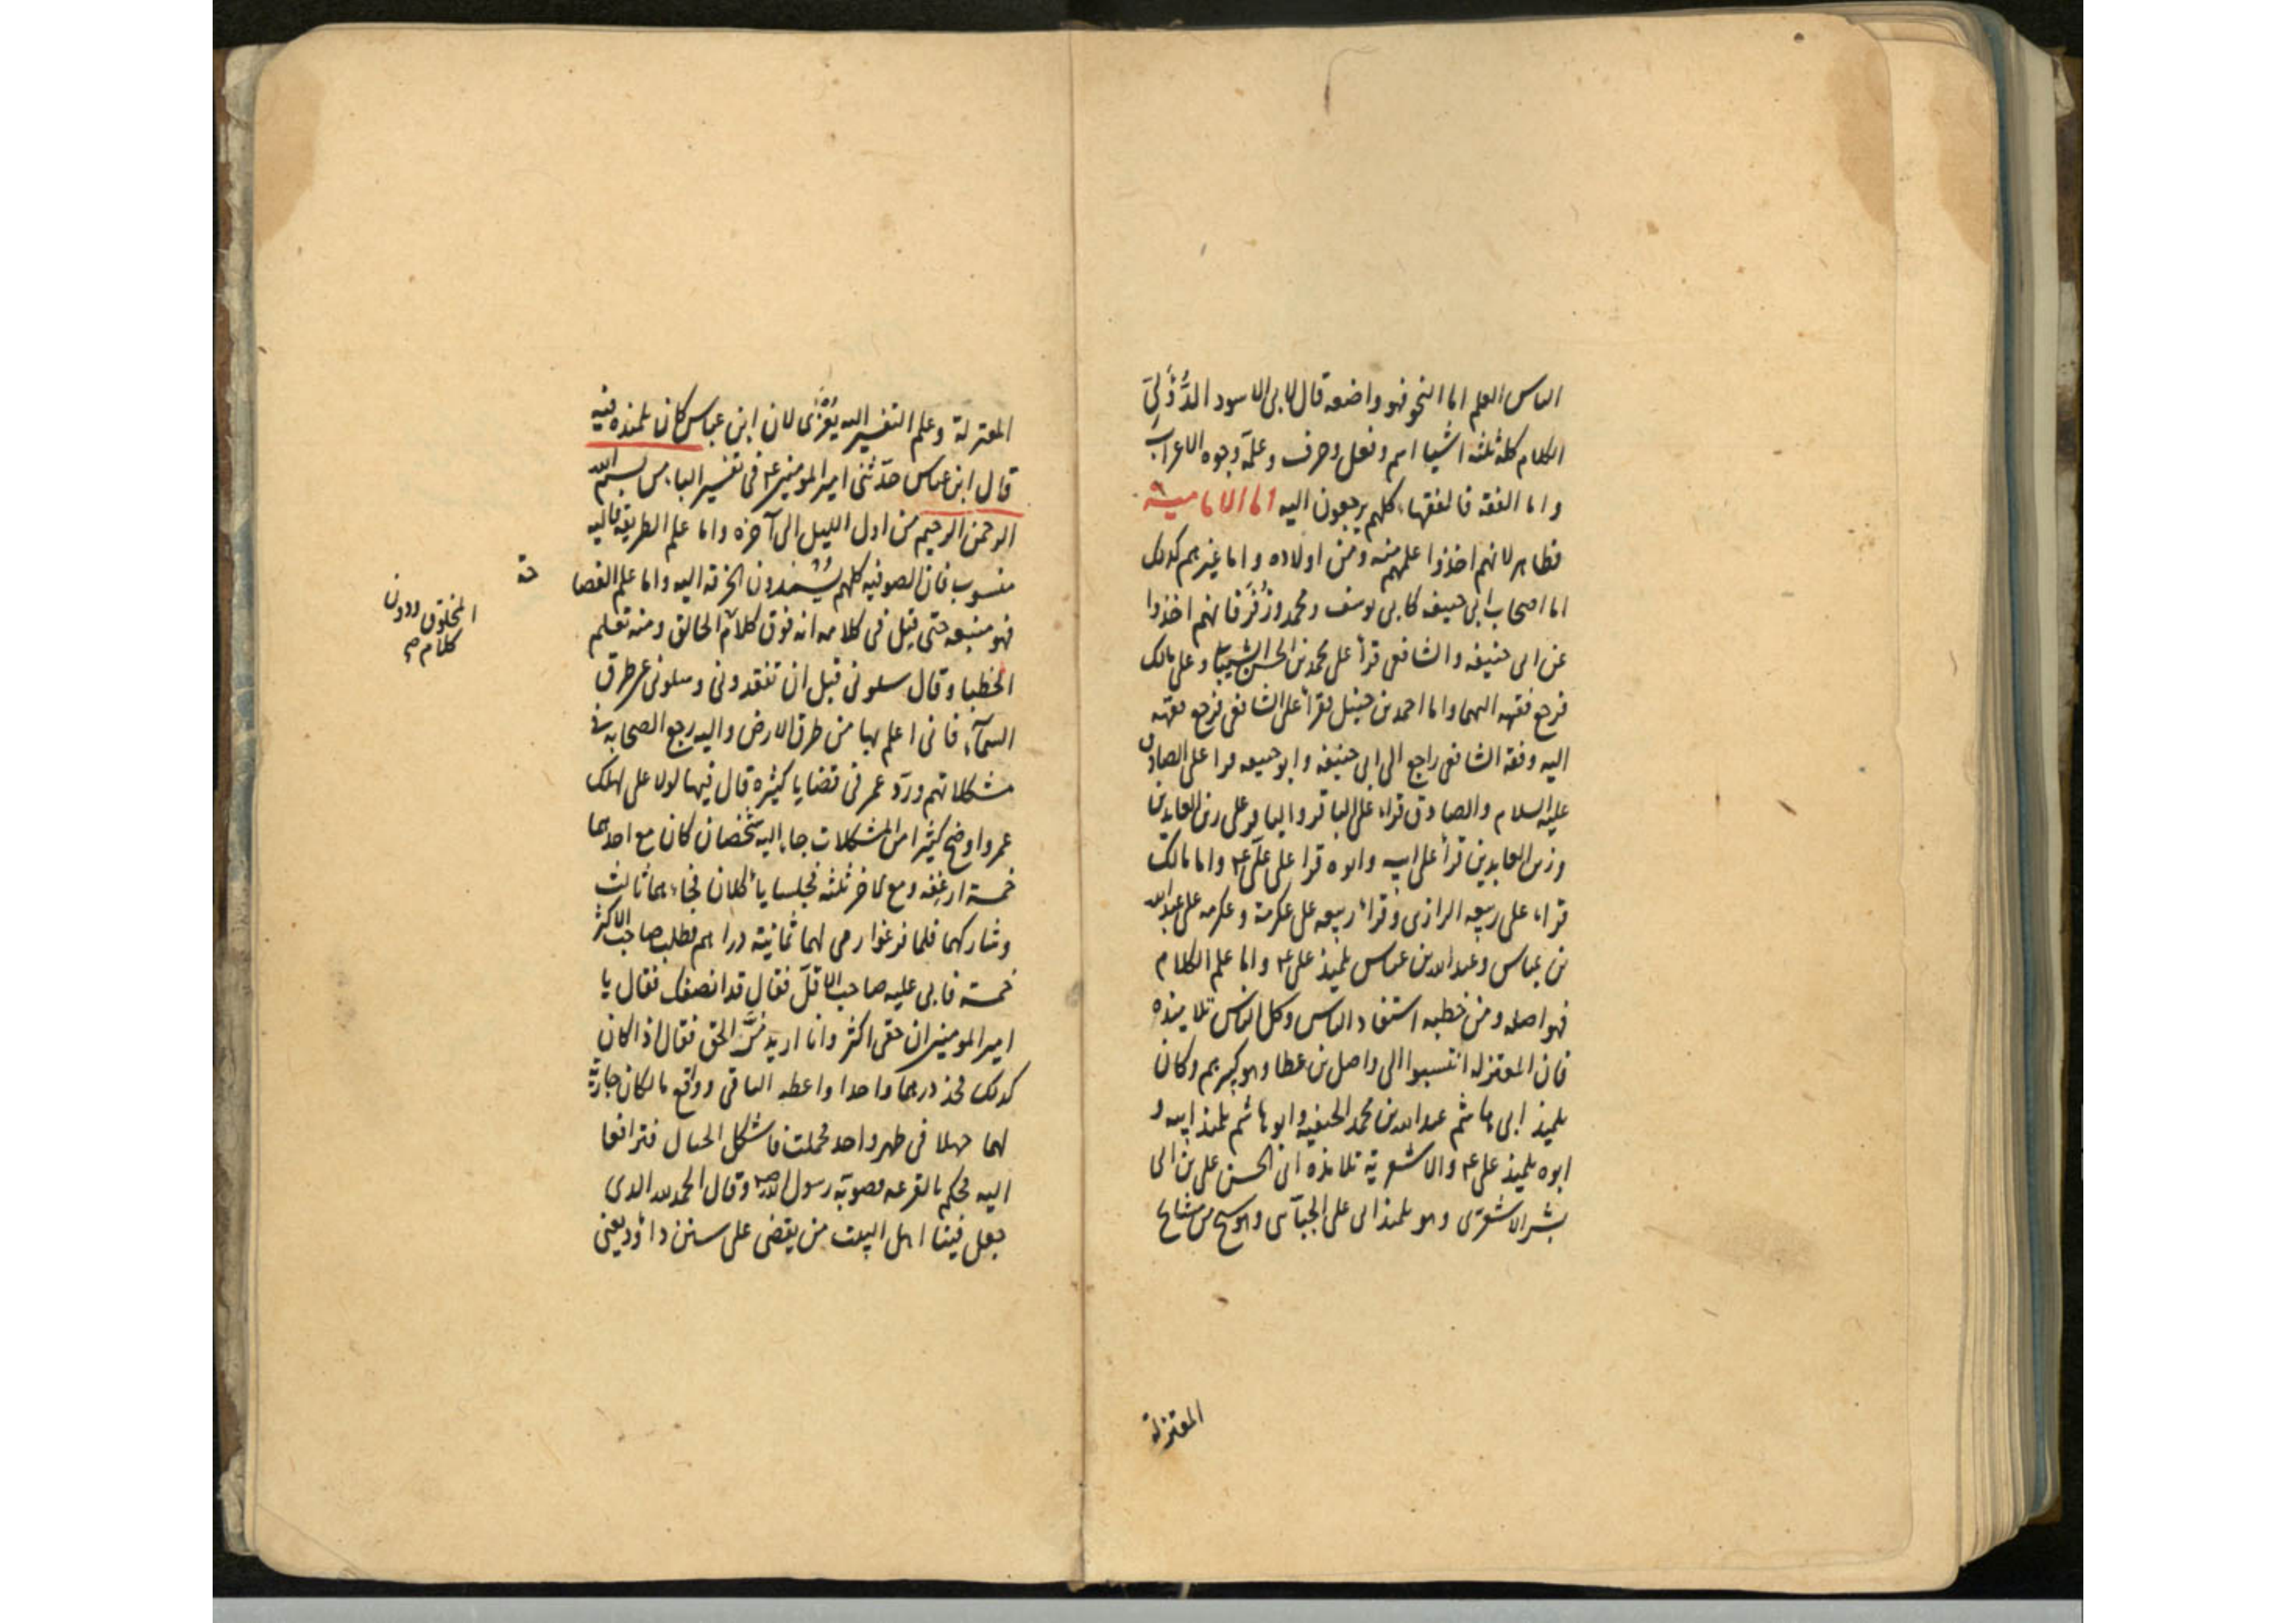 الناس العلم اما النحو فهو واضعه قال لابى الاسود الدُّؤَلِىّ
الكلام كله ثلثه اشيا اسم وفعل وحرف وعلّمه وجوه الاعراب
واما الفقه فالفقهاء كلهم يرجعون اليه اما الامامية
فظاهر لانهم اخذوا علمهم منه ومن اولاده واما غيرهم كذلك
اما اصحاب ابى حنيفه كابى يوسف ومحمد وزُفَر فانهم اخذوا
عن ابى حنيفه والشافعى قرأ على محمد بن الحسن الشيبانى وعلى مالك
فرجع فقهه اليهما واما احمد بن حنبل فقرأ على الشافعى فرجع فقهه
اليه وفقه الشافعى راجع الى ابى حنيفه وابو حنيفه قرا على الصادق
عليه السلام والصادق قراء على الباقر والباقر على زين العابدين
وزين العابدين قرأ على ابيه وابوه قرا على علىّ ع واما مالك
قراء على ربيعه الرازى وقراء ربيعه على عكرمة وعكرمه على عبدالله
بن عباس وعبدالله بن عباس تلميذ على ع واما علم الكلام
فهو اصله ومن خطبه استفاد الناس وكل الناس تلاميذه
فان المعتزله انتسبوا الى واصل بن عطا وهو كبيرهم وكان
تلميذ ابى هاشم عبدالله بن محمد الحنفيه وابو هاشم تلميذ ابيه و
ابوه تلميذ على ع والاشعرية تلامذه ابى الحسن على بن ابى
بشر الاشعرى وهو تلميذ ابى على الجبآئى وهو شيخ من مشايخ
المعتزلة
المعتزلة وعلم التفسير اليه يُعْزَى لان ابن عباس كان تلميذه فيه
قال ابن عباس حدّثنى امير المومنين ع فى تفسير الباء من بسم الله
الرحمن الرحيم من اول الليل الى آخره واما علم الطريقه فاليه
منسوب فان الصوفيه كلهم يُسْندون الخرقه اليه واما علم الفصا
حة
فهو منبعه حتى قيل فى كلامه انه فوق كلام الخالق ومنه تعلم
المخلوق ودون
كلام صح
الخطبا وقال سلونى قبل ان تفقدونى وسلونى عن طرق
السمآء فانى اعلم بها من طرق الارض واليه رجع الصحابه فى
مشكلاتهم وردّ عمر فى قضايا كثيره قال فيها لولا على لهلك
عمر واوضح كثيرا من المشكلات جاء اليه شخصان كان مع احدهما
خمسة ارغفه ومع الاخر ثلثه فجلسا يأكلان فجاءهما ثالث
وشاركهما فلما فرغوا رمى لهما ثمانية دراهم فطلب صاحب الاكثر
خمسة فابى عليه صاحب الاقلّ فقال قد انصفك فقال يا
امير المومنين ان حقى اكثر وانا اريد مُرَّ الحق فقال اذا كان
كذلك فخذ درهما واحدا واعطه الباقى وواقع مالكان جارية
لهما جهلا فى طهر واحد فحملت فاشكل الحال فترافعا
اليه فحكم بالقرعه فصوبه رسول الله ص وقال الحمد لله الذى
جعل فينا اهل البيت من يقضى على سنن داؤد يعنى